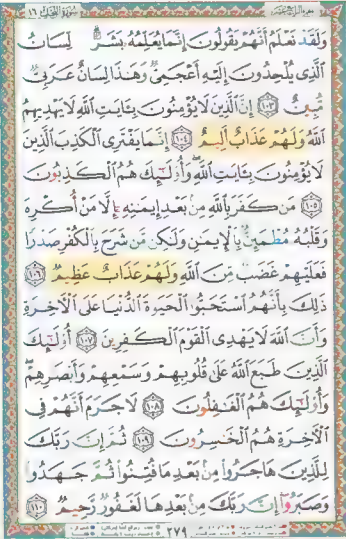 سورة النحل ١٦
وَلَقَدْ نَعْلَمُ أَنَّهُمْ يَقُولُونَ إِنَّمَا يُعَلِّمُهُۥ بَشَرٌ ۗ لِّسَانُ
ٱلَّذِى يُلْحِدُونَ إِلَيْهِ أَعْجَمِىٌّ وَهَـٰذَا لِسَانٌ عَرَبِىٌّ
مُّبِينٌ ١٠٣ إِنَّ ٱلَّذِينَ لَا يُؤْمِنُونَ بِـَٔايَـٰتِ ٱللَّهِ لَا يَهْدِيهِمُ
ٱللَّهُ وَلَهُمْ عَذَابٌ أَلِيمٌ ١٠٤ إِنَّمَا يَفْتَرِى ٱلْكَذِبَ ٱلَّذِينَ
لَا يُؤْمِنُونَ بِـَٔايَـٰتِ ٱللَّهِ ۖ وَأُو۟لَـٰٓئِكَ هُمُ ٱلْكَـٰذِبُونَ
١٠٥ مَن كَفَرَ بِٱللَّهِ مِنۢ بَعْدِ إِيمَـٰنِهِۦٓ إِلَّا مَنْ أُكْرِهَ
وَقَلْبُهُۥ مُطْمَئِنٌّۢ بِٱلْإِيمَـٰنِ وَلَـٰكِن مَّن شَرَحَ بِٱلْكُفْرِ صَدْرًا
فَعَلَيْهِمْ غَضَبٌ مِّنَ ٱللَّهِ وَلَهُمْ عَذَابٌ عَظِيمٌ ١٠٦
ذَٰلِكَ بِأَنَّهُمُ ٱسْتَحَبُّوا۟ ٱلْحَيَوٰةَ ٱلدُّنْيَا عَلَى ٱلْـَٔاخِرَةِ
وَأَنَّ ٱللَّهَ لَا يَهْدِى ٱلْقَوْمَ ٱلْكَـٰفِرِينَ ١٠٧ أُو۟لَـٰٓئِكَ
ٱلَّذِينَ طَبَعَ ٱللَّهُ عَلَىٰ قُلُوبِهِمْ وَسَمْعِهِمْ وَأَبْصَـٰرِهِمْ ۖ
وَأُو۟لَـٰٓئِكَ هُمُ ٱلْغَـٰفِلُونَ ١٠٨ لَا جَرَمَ أَنَّهُمْ فِى
ٱلْـَٔاخِرَةِ هُمُ ٱلْخَـٰسِرُونَ ١٠٩ ثُمَّ إِنَّ رَبَّكَ
لِلَّذِينَ هَاجَرُوا۟ مِنۢ بَعْدِ مَا فُتِنُوا۟ ثُمَّ جَـٰهَدُوا۟
وَصَبَرُوٓا۟ إِنَّ رَبَّكَ مِنۢ بَعْدِهَا لَغَفُورٌ رَّحِيمٌ ١١٠
٢٧٩